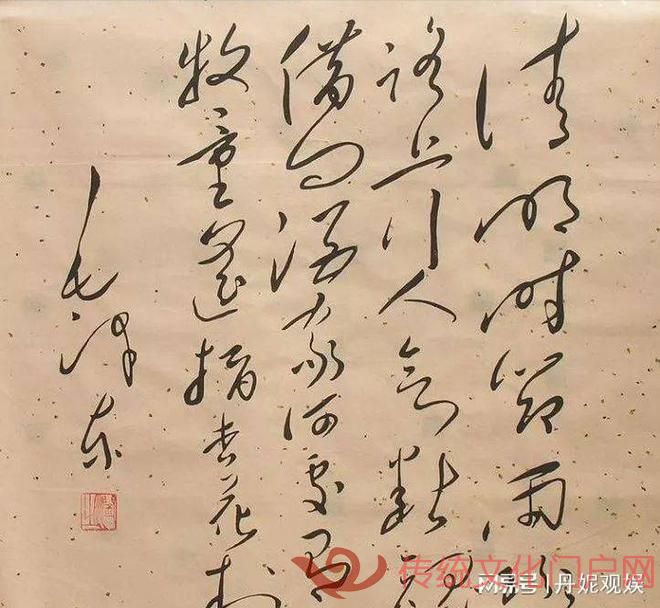 清明时节雨纷
路上行人欲断魂
借问酒家何处有
牧童遥指杏花村
毛泽东
传统文化门户网
网易号 | 丹妮观娱